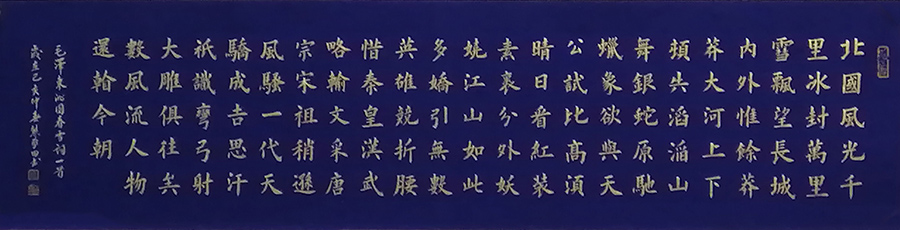 北國風光千
里冰封萬里
雪飄望長城
內外惟餘莽
莽大河上下
頓失滔滔山
舞銀蛇原馳
蠟象欲與天
公試比高須
晴日看紅裝
素裹分外妖
嬈江山如此
多嬌引無數
英雄競折腰
惜秦皇漢武
略輸文采唐
宗宋祖稍遜
風騷一代天
驕成吉思汗
祇識彎弓射
大雕俱往矣
數風流人物
還看今朝
毛澤東沁園春雪詞一首
歲在己亥仲春